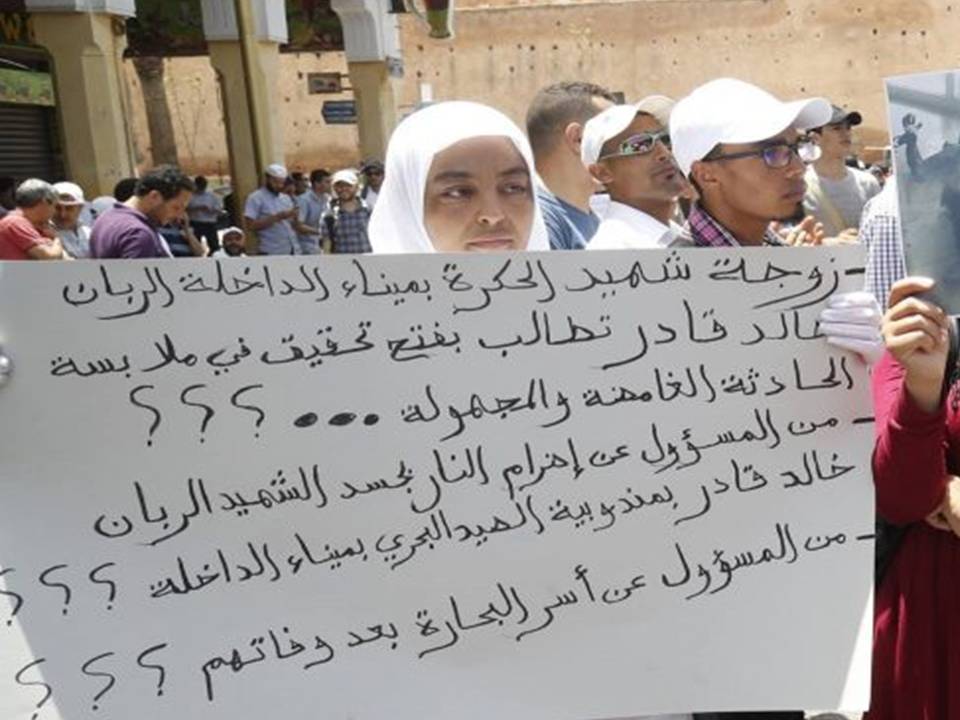 - زوجة شهيد الحكرة بميناء الداخلة الربان
خالد قادر تطالب بفتح تحقيق في ملابسة
الحادثة الغامضة والمجهولة ... ؟ ؟ ؟
- من المسؤول عن إضرام النار بجسد الشهيد الربان
خالد قادر بمندوبية الصيد البحري بميناء الداخلة ؟ ؟ ؟
- من المسؤول عن أسر البحارة بعد وفاتهم ؟ ؟ ؟